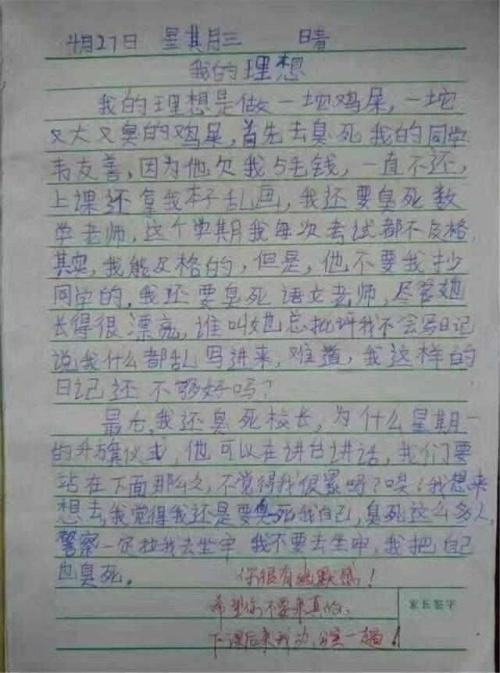 4月27日 星其月三 晴
我的理想
我的理想是做一坨鸡屎，一坨
又大又臭的鸡屎，首先去臭死我的同学
韦友善，因为他欠我5毛钱，一直不还，
上课还拿我本子乱画，我还要臭死数
学老师，这个学期我每次考试都不及格，
其实，我能及格的，但是，他不要我抄
同学的，我还要臭死语文老师，尽管她
长得很漂亮，谁叫她总批评我不会写日记
说我什么都乱写进来，难道，我这样的
日记还不够好吗？
最后，我还臭死校长，为什么星期一
的升旗仪式，他可以在讲台讲话，我们要
站在下面那么久，不觉得我很累吗？哎！我想来
想去，我觉得我还是要臭死我自己，臭死这么多人
警察一定拉我去坐牢 我不要去坐牢，我把自己
也臭死。
你很有幽默感！
希望你不要来真的。
下课后来我办公室一趟！
家长签字